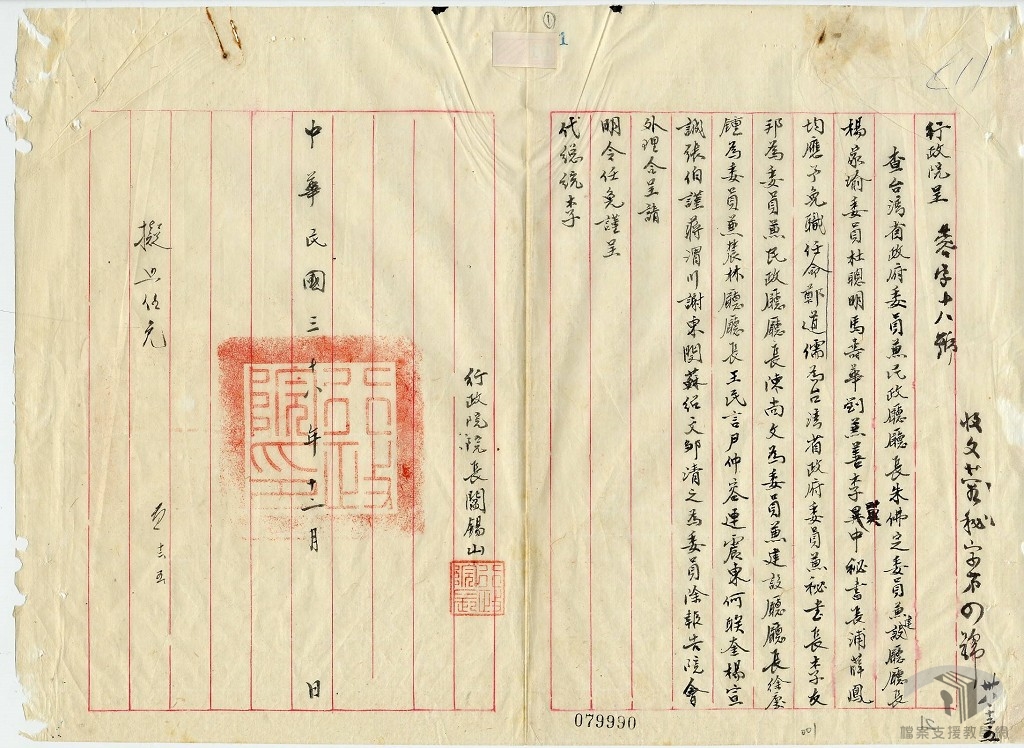 ①
1
行政院呈 叁字十八號
查台灣省政府委員兼民政廳廳長朱佛定委員兼建設廳廳長
楊家瑜委員杜聰明馬壽華劉兼善李翼中秘書長浦薛鳳
均應予免職任命鄭道儒為台灣省政府委員兼秘書長李友
邦為委員兼民政廳廳長陳尚文為委員兼建設廳廳長徐慶
鐘為委員兼農林廳廳長王民言尹仲容連震東何联奎楊宣
誠張伯謹蔣渭川謝東閔蘇紹文鄒清之為委員除報告院會
外理合呈請
明令任免謹呈
代總統李
行政院院長閻錫山
行政院印
中華民國三十八年十二月 日
079990
001
檔案支援教學網